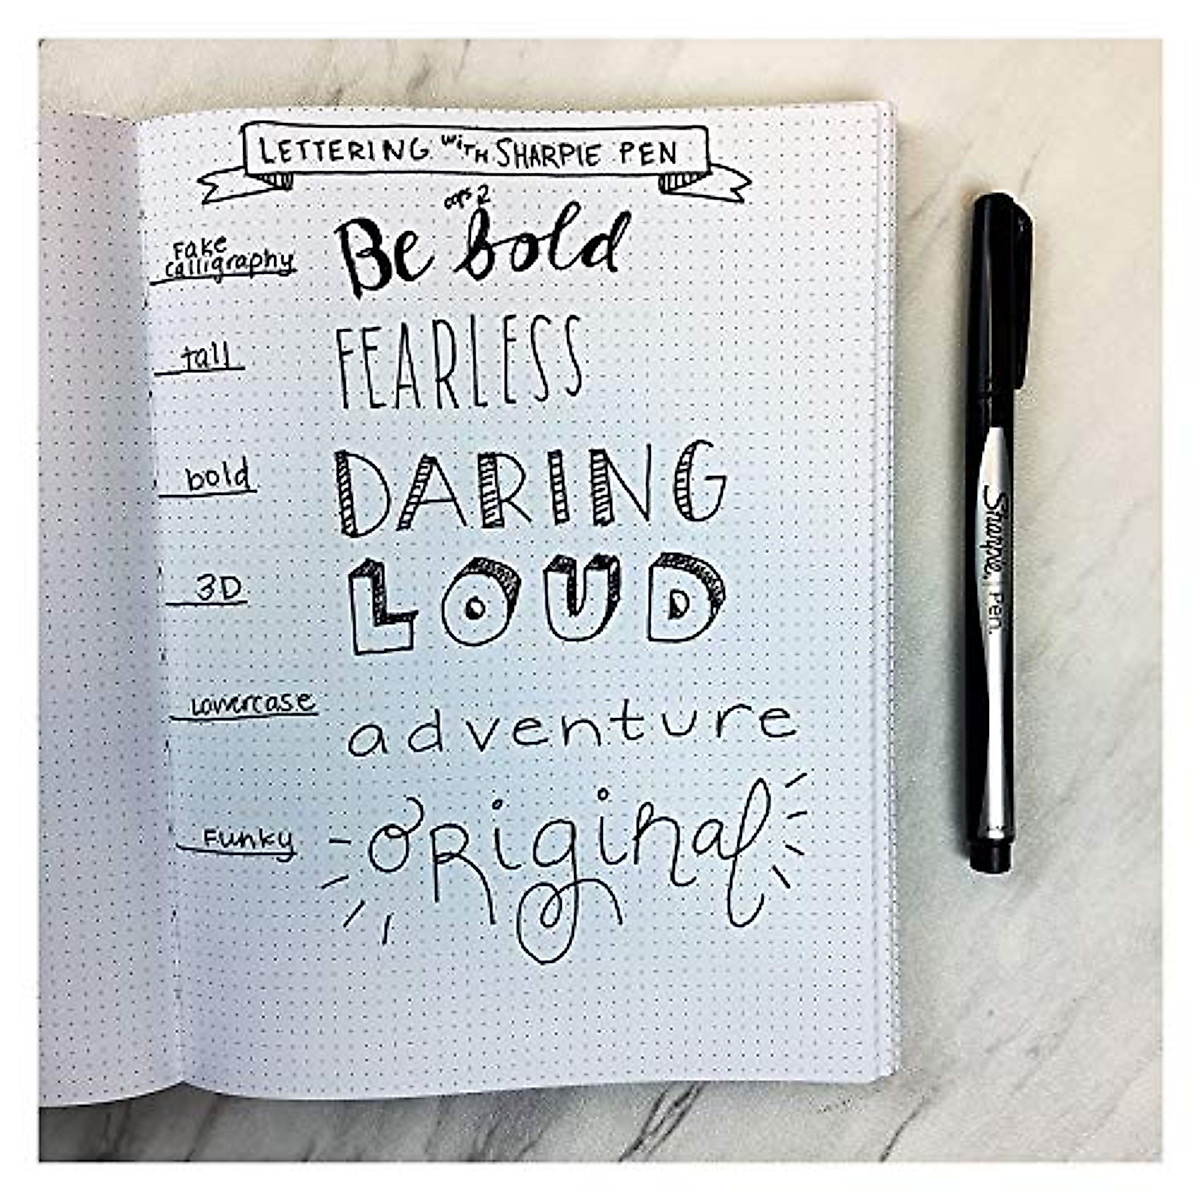 LETTERING WITH SHARPIE PEN
oops 2
Fake
calligraphy
Be bold
tall
FEARLESS
bold
DARING
3D
LOUD
Lowercase
adventure
Funky
oRiginal
Sharpie. Pen.